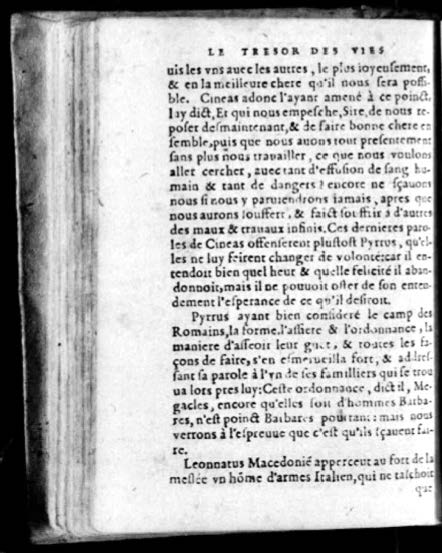 LE TRESOR DES VIES
uis les vns auec les autres, le plus ioyeusement,
& en la meilleure chere qu'il nous sera possi-
ble. Cineas adonc l'ayant amené à ce poinct,
luy dict, Et qui nous empesche, Sire, de nous re-
poser desmaintenant, & de faire bonne chere en
semble, puis que nous auons tout presentement
sans plus nous trauailler, ce que nous voulons
aller cercher, auec tant d'effusion de sang hu-
main & tant de dangers? encore ne sçauons
nous si nous y paruiendrons iamais, apres que
nous aurons souffert, & faict souffrir à d'autres
des maux & trauaux infinis. Ces dernieres paro-
les de Cineas offenserent plustost Pyrrus, qu'el-
les ne luy feirent changer de volonté: car il en-
tendoit bien quel heur & quelle felicité il aban-
donnoit, mais il ne pouuoit oster de son enten-
dement l'esperance de ce qu'il desiroit.
Pyrrus ayant bien consideré le camp des
Romains, la forme, l'assiete & l'ordonnance, la
maniere d'asseoir leur guet, & toutes les fa-
çons de faire, s'en esmerueilla fort, & adres-
sant sa parole à l'vn de ses familliers qui se trou
ua lors pres luy: Ceste ordonnance, dict il, Me-
gacles, encore qu'elles soit d'hommes Barba-
res, n'est poinct Barbares pourtant: mais nous
verrons à l'espreuue que c'est qu'ils sçauent fai-
re.
Leonnatus Macedonié apperceut au fort de la
meslée vn hôme d'armes Italien, qui ne taschoit
que